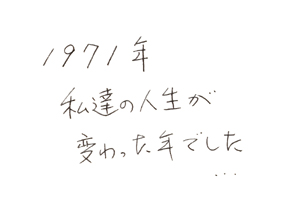 1971年
私達の人生が
変わった年でした
...